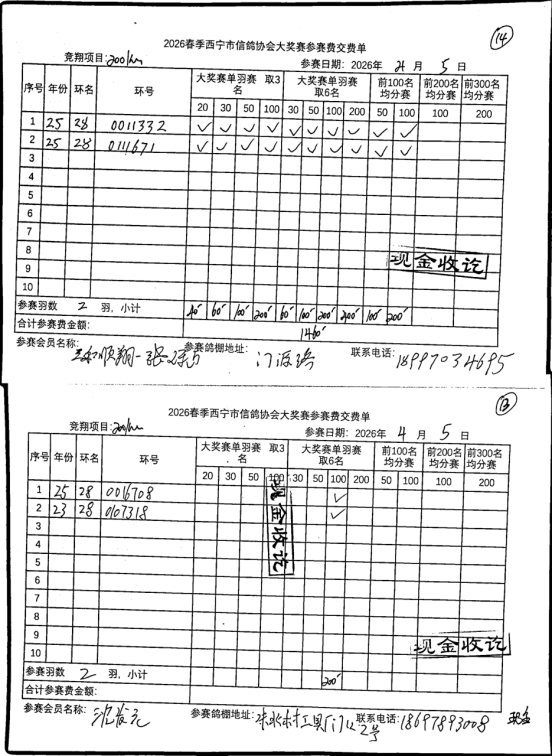 ⑭
2026春季西宁市信鸽协会大奖赛参赛费交费单
竞翔项目:200km 参赛日期: 2026年 4 月 5 日
序号 年份 环名 环号 大奖赛单羽赛 取3名 大奖赛单羽赛 取6名 前100名均分赛 前200名均分赛 前300名均分赛
20 30 50 100 30 50 100 200 50 100 100 200
1 25 28 0011332 ✓ ✓ ✓ ✓ ✓ ✓ ✓ ✓ ✓ ✓
2 25 28 0111671 ✓ ✓ ✓ ✓ ✓ ✓ ✓ ✓ ✓ ✓
3
4
5
6
7
8
9
10
现金收讫
参赛羽数 2 羽，小计 40 60 100 200 60 100 200 400 100 200
合计参赛费金额: 1460
参赛会员名称: 参赛鸽棚地址: 门源路 联系电话: 18997034695
⑬
2026春季西宁市信鸽协会大奖赛参赛费交费单
竞翔项目:200km 参赛日期: 2026年 4 月 5 日
序号 年份 环名 环号 大奖赛单羽赛 取3名 大奖赛单羽赛 取6名 前100名均分赛 前200名均分赛 前300名均分赛
20 30 50 100 30 50 100 200 50 100 100 200
1 25 28 0016708 ✓
2 23 28 0107318 ✓
现金收讫
3
4
5
6
7
8
9
10
现金收讫
参赛羽数 2 羽，小计 200
合计参赛费金额:
参赛会员名称: 参赛鸽棚地址: 联系电话: 18697893008 现金
2号